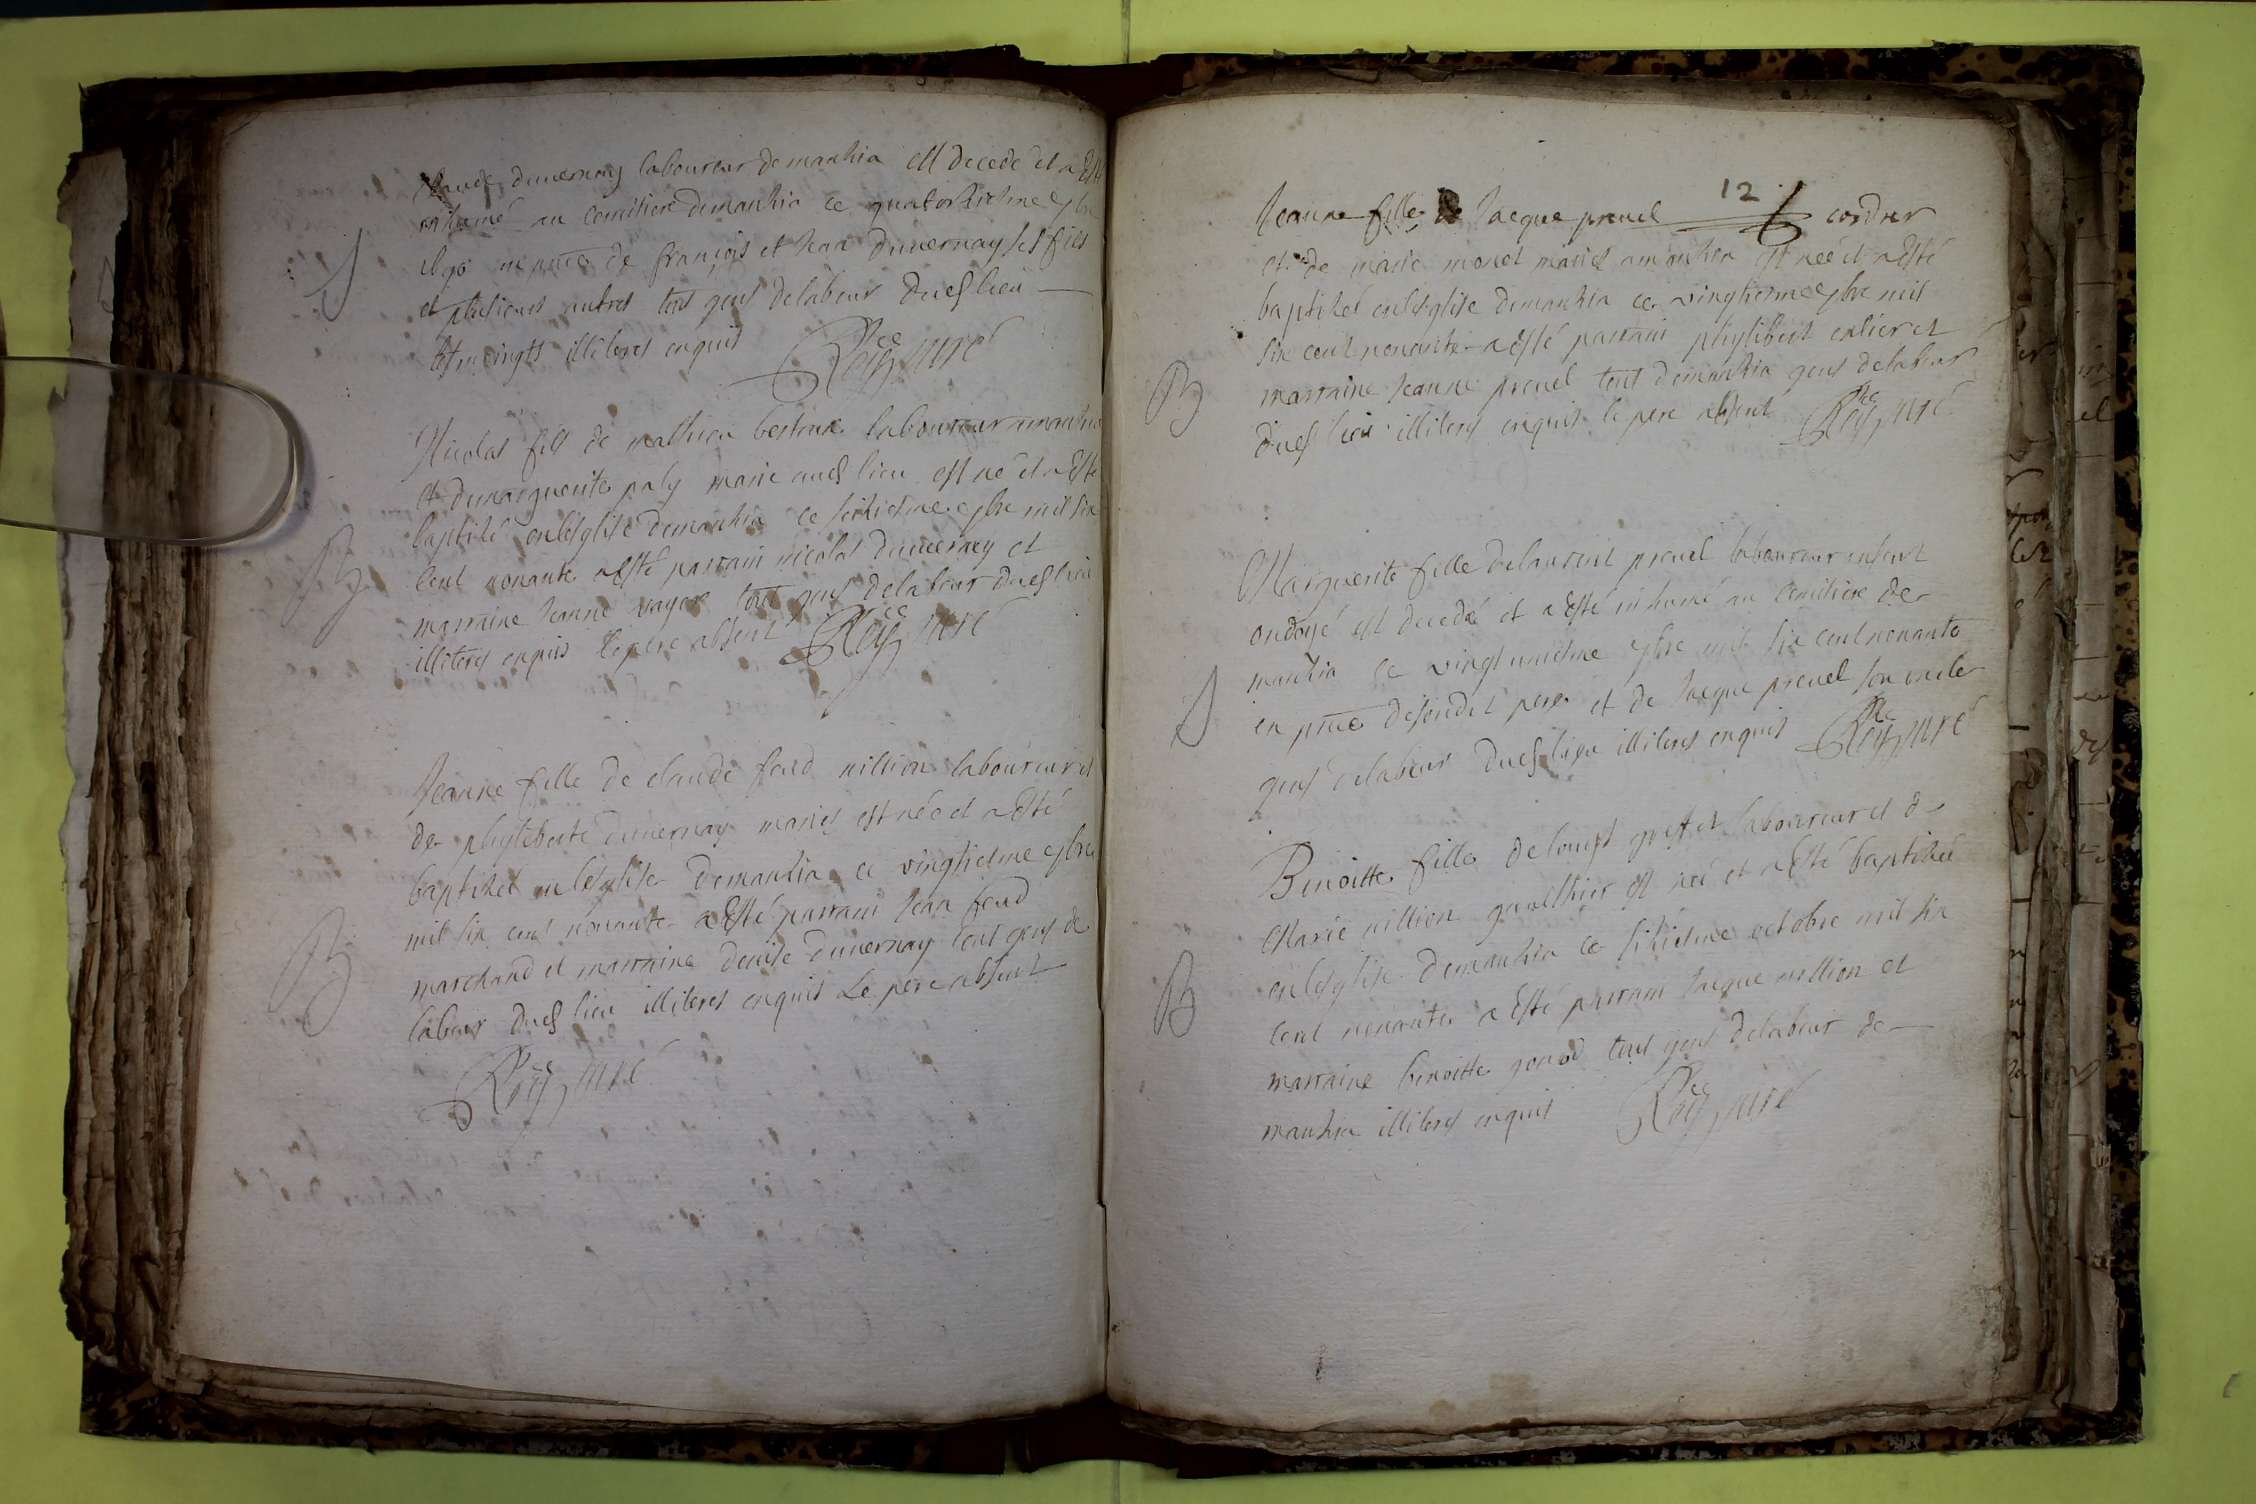 Claude duvernay laboureur de manhia est decede et a Esté
inhumé au cemitiere de manhia ce quatorzhiesme 7bre
1690 en pnce de françois et Jean duvernay ses fils
et plusieurs autres tous gens de labeur dud lieu
illiteres enquis
Roy, curé
Nicolas fils de mathieu laboureur a manhia
et de marguerite paly marié aud lieu est né et a Esté
baptisé en lesglise de manhia ce seiziesme 7bre mil six
cent nonante a Esté parrain nicolas duvernay et
marraine Jeanne tous gens de labeur dud lieu
illiteres enquis le pere absent
Roy, curé
B
Jeanne fille de claude feud nillion laboureur et
de phyliberte duvernay mariés est née et a Esté
baptisée en lesglise de manhia ce vingtiesme 7bre
mil six cent nonante a Esté parrain Jean feud
marchand et marraine denise duvernay tous gens de
labeur dud lieu illiteres enquis Le pere absent
B
Roy, curé
12
Jeanne fille de Jacque prevel cordier
et de marie monet mariés a manhia est née et a Esté
baptisée en lesglise de manhia ce vingtiesme 7bre mil
six cent nonante a Esté parrain phylibert et
marraine Jeanne prevel tous de manhia gens de labeur
dud lieu illiteres enquis le pere absent
B
Roy, curé
Marguerite fille de laurent prevel laboureur enfant
ondoyé est decedé et a Esté inhumé au cemitiere de
manhia ce vingtuniesme 7bre mil six cent nonante
en pnce de sondit pere et de Jacque prevel son oncle
gens de labeur dud lieu illiteres enquis
Roy, curé
Benoitte fille de louys laboureur et de
Marie nillion gaulthier est née et a Esté baptisée
en lesglise de manhia ce siziesme octobre mil six
cent nonante a Esté parrain Jacque nillion et
marraine benoitte gonod tous gens de labeur de
manhia illiteres enquis
B
Roy, curé